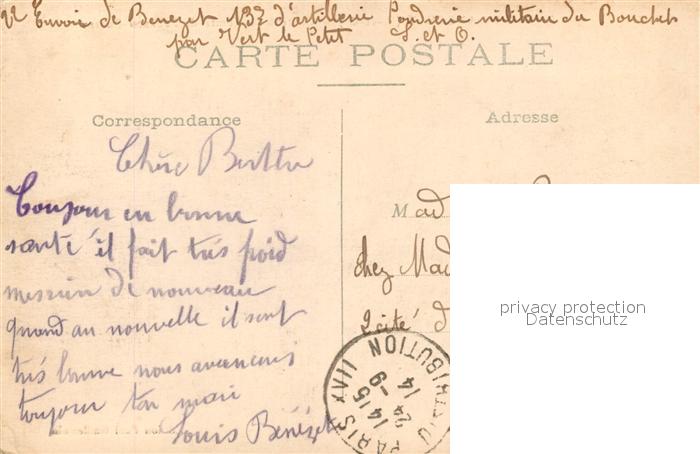 Envoi de Benezet 132 d'artillerie Poudrerie militair du Bouchet
par Vert le Petit S. et O.
CARTE POSTALE
Correspondance
Adresse
Chère Berthe
Toujour en bonne
santé il fait très froid
messieu de nouveau
quand au nouvelle il sont
très bonne nous avancons
toujour ton mari
Louis Bénézet
Mad
chez Mad
2 cité d
PARIS XVII DISTRIBUTION
14 15
9 - 14
privacy protection
Datenschutz